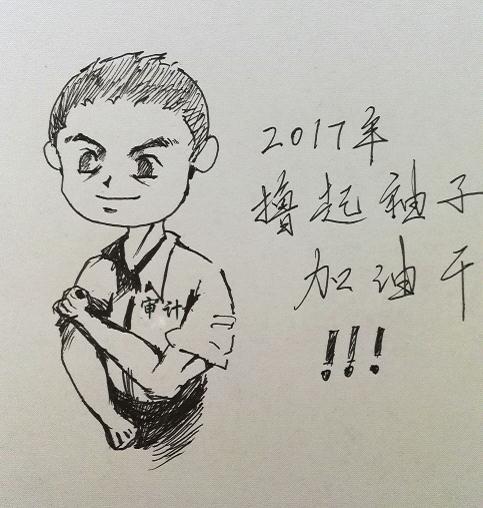 2017年
撸起袖子
加油干
!!!
审计